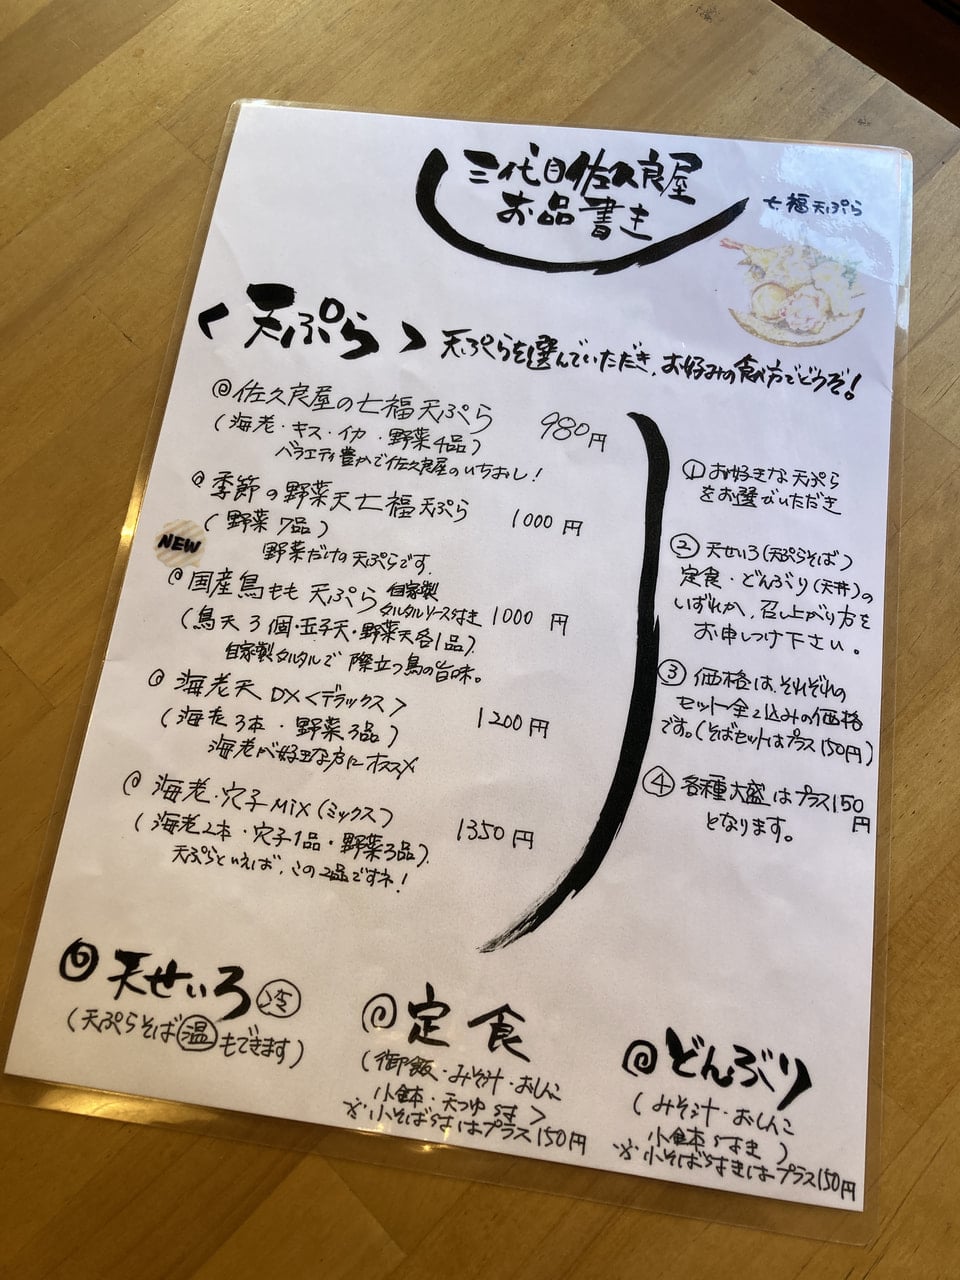 三代目佐久良屋
お品書き
七福天ぷら
<天ぷら> 天ぷらを選んでいただき、お好みの食べ方でどうぞ!
佐久良屋の七福天ぷら 980円
(海老・キス・イカ・野菜4品)
バラエティ豊かで佐久良屋のいちおし!
季節の野菜天七福天ぷら 1000円
(野菜7品)
野菜だけの天ぷらです.
NEW
国産鳥もも天ぷら 自家製タルタルソース付き 1000円
(鳥天3個・玉子天・野菜天各1品)
自家製タルタルで際立つ鳥の旨味。
海老天DX<デラックス> 1200円
(海老3本・野菜3品)
海老が好きな方にオススメ
海老・穴子MIX(ミックス) 1350円
(海老2本・穴子1品・野菜3品)
天ぷらといえば、この2品ですネ!
①お好きな天ぷら
をお選びいただき
②天せいろ(天ぷらそば)
定食・どんぶり(天丼)の
いずれか、召し上がり方を
お申しつけ下さい。
③価格は、それぞれの
セット全て込みの価格
です。(そばセットはプラス150円)
④各種大盛はプラス150円
となります。
天せいろ㊀冷
(天ぷらそば温もできます)
定食
(御飯・みそ汁・おしんこ
小鉢・天つゆ付き)
※小そば付きはプラス150円
どんぶり
(みそ汁・おしんこ
小鉢付き)
※小そば付きはプラス150円